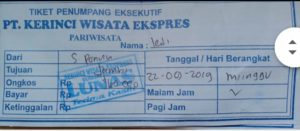 TIKET PENUMPANG EKSEKUTIF
PT. KERINCI WISATA EKSPRES
PARIWISATA
Nama : Jedi
Dari : S Penuh Tanggal / Hari Berangkat
Tujuan : 22-09-2019 minggu
Ongkos Rp
Bayar Rp Malam Jam
Ketinggalan Rp Pagi Jam
LUNAS
Terima Kasih